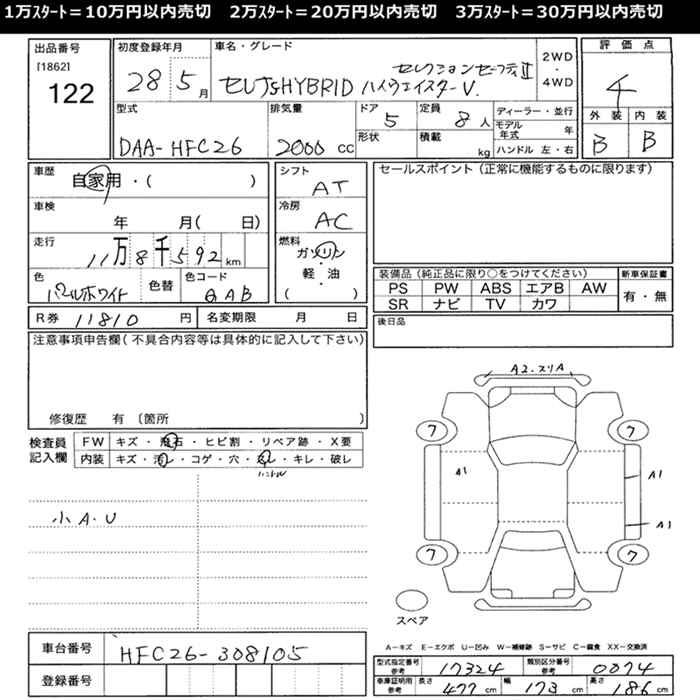 1万ｽﾀｰﾄ＝10万円以内売切　2万ｽﾀｰﾄ＝20万円以内売切　3万ｽﾀｰﾄ＝30万円以内売切
出品番号
[1862]
122
初度登録年月
28 5月
車名・グレード
セレナS-HYBRID ハイウェイスターV.
セレクションセーフティⅡ
2WD
・
4WD
評価点
4
外装 内装
B B
型式
DAA-HFC26
排気量
2000 CC
ドア
5
形状
定員
8人
積載
kg
ディーラー・並行
モデル年式 年
ハンドル 左・右
車歴
自家用・( )
車検
年 月( 日)
走行
11万8千592km
色
パールホワイト
色替
色コード
QAB
シフト
AT
冷房
AC
燃料
ガソリン
・
軽・油
( )
セールスポイント（正常に機能するものに限ります）
装備品（純正品に限り○をつけてください）
PS PW ABS エアB AW
SR ナビ TV カワ
新車保証書
有・無
R券 11810円 名変期限 月 日
後日品
注意事項申告欄(不具合内容等は具体的に記入して下さい)
修復歴 有〔箇所 〕
検査員
記入欄
FW キズ・飛石・ヒビ割・リペア跡・X要
内装 キズ・汚レ・コゲ・穴・・キレ・破レ
小A・U
A2.スリA
7 7
A1 A1
A1
7 7
スペア
A－キズ E－エクボ U－凹み W－補修跡 S－サビ C－腐食 XX－交換済
車台番号 HFC26-308105
登録番号
型式指定番号
参考
17324
類別区分番号
参考
0074
車庫証明用
参考
長さ 477cm 幅 173cm 高さ 186cm